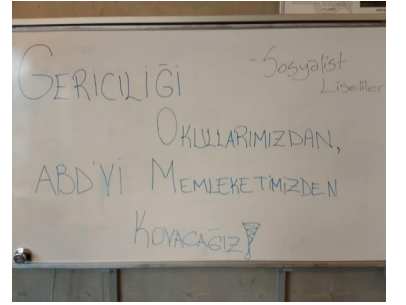 GERİCİLİĞİ
- Sosyalist
Liseliler
OKULLARIMIZDAN,
ABD'Yİ MEMLEKETİMİZDEN
KOVACAĞIZ!